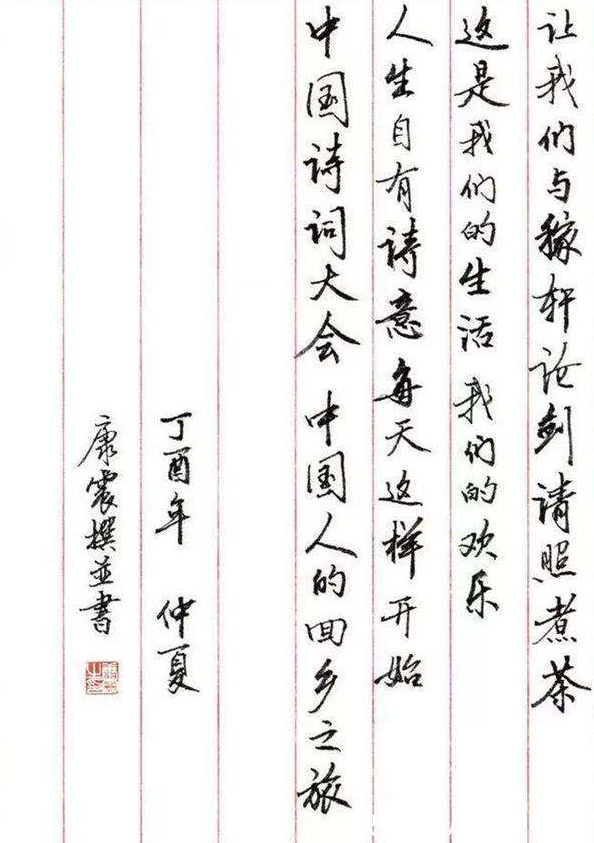 让我们与稼轩论剑请照煮茶
这是我们的生活 我们的欢乐
人生自有诗意每天这样开始
中国诗词大会 中国人的回乡之旅
丁酉年 仲夏
康震撰並書